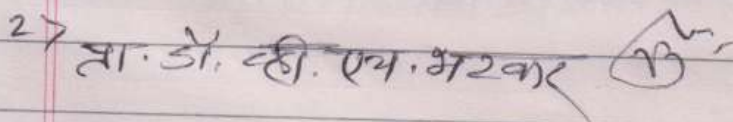 2> प्रा. डॉ. व्ही. एच. भटकर